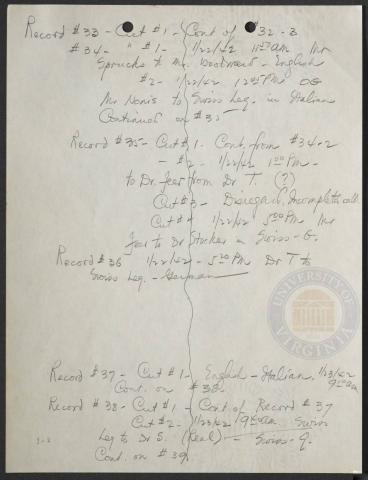 Record #33 - Cut #1 - Cont. of #32-3
#34 - " #1 - 1/22/42 1150 AM Mr
Spruchs to Mr. - English
#2 - 1/22/42 1225 PM
Mr to Swiss Leg. in Italian
Continued on #35
Record #35 - Cut #1 - Cont. from #34-2
- #2 - 1/22/42 100 PM -
to Dr. Feer from Dr T. (?)
Cut #3 - Disregard, Incomplete call
Cut #4 1/22/42 500 PM Mr
Feer to Dr in Swiss-G.
Record #36 1/22/42 - 520 PM Dr T to
Swiss Leg. - German
Record #37 - Cut #1 - English - Italian, 1/23/42
Cont. on #38. 900 am
Record #38 - Cut #1 - Cont. of Record #37
Cut #2 - 1/23/42 am Swiss
Leg to Dr S. (Real) - Swiss-G.
Cont. on #39.
UNIVERSITY OF
VIRGINIA